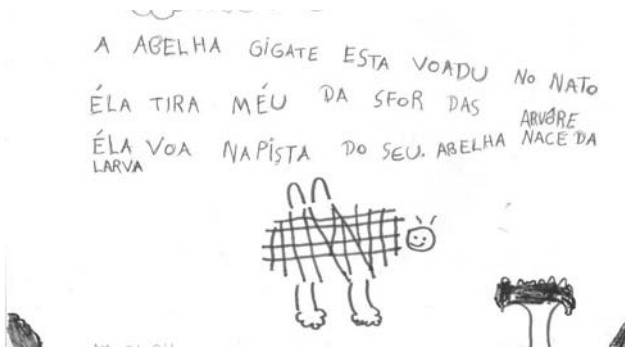 A ABELHA GIGATE ESTA VOADU NO NATO
ÉLA TIRA MÉU DA SFOR DAS ARVORE
ÉLA VOA NA PISTA DO SEU. ABELHA NACE DA
LARVA